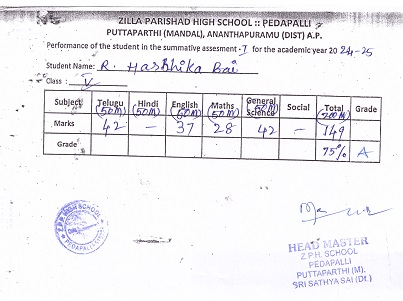 ZILLA PARISHAD HIGH SCHOOL :: PEDAPALLI
PUTTAPARTHI (MANDAL), ANANTHAPURAMU (DIST) A.P.
Performance of the student in the summative assesment -I for the academic year 2024-25
Student Name: R. Hashhika Bai
Class : V
Subject Telugu (50M) Hindi (50M) English (50M) Maths (50M) General Science (50M) Social Total (200M) Grade
Marks 42 — 37 28 42 — 149
Grade 75% A
Z.P.H. SCHOOL
PEDAPALLI
HEAD MASTER
Z.P.H. SCHOOL
PEDAPALLI
PUTTAPARTHI (M).
SRI SATHYA SAI (Dt.)